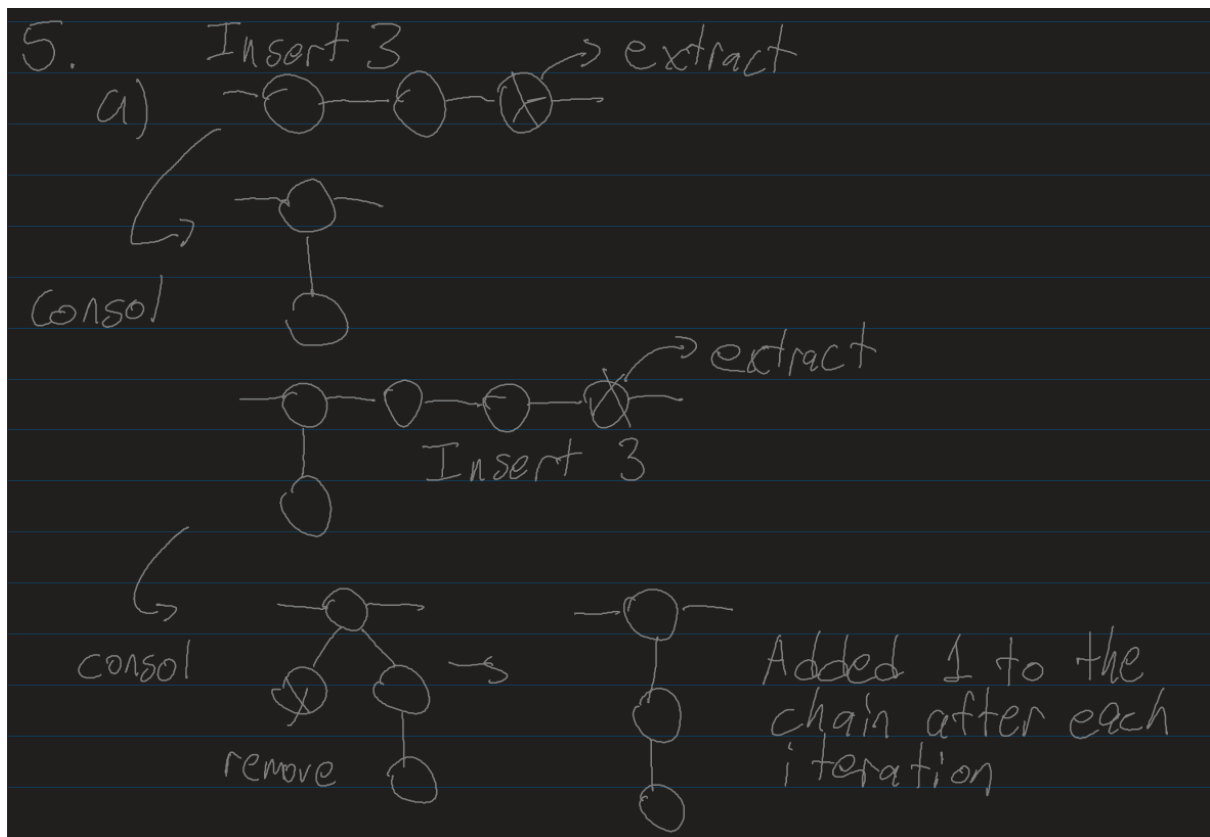 5. Insert 3
a) extract
Consol
extract
Insert 3
consol
remove
Added 1 to the
chain after each
iteration